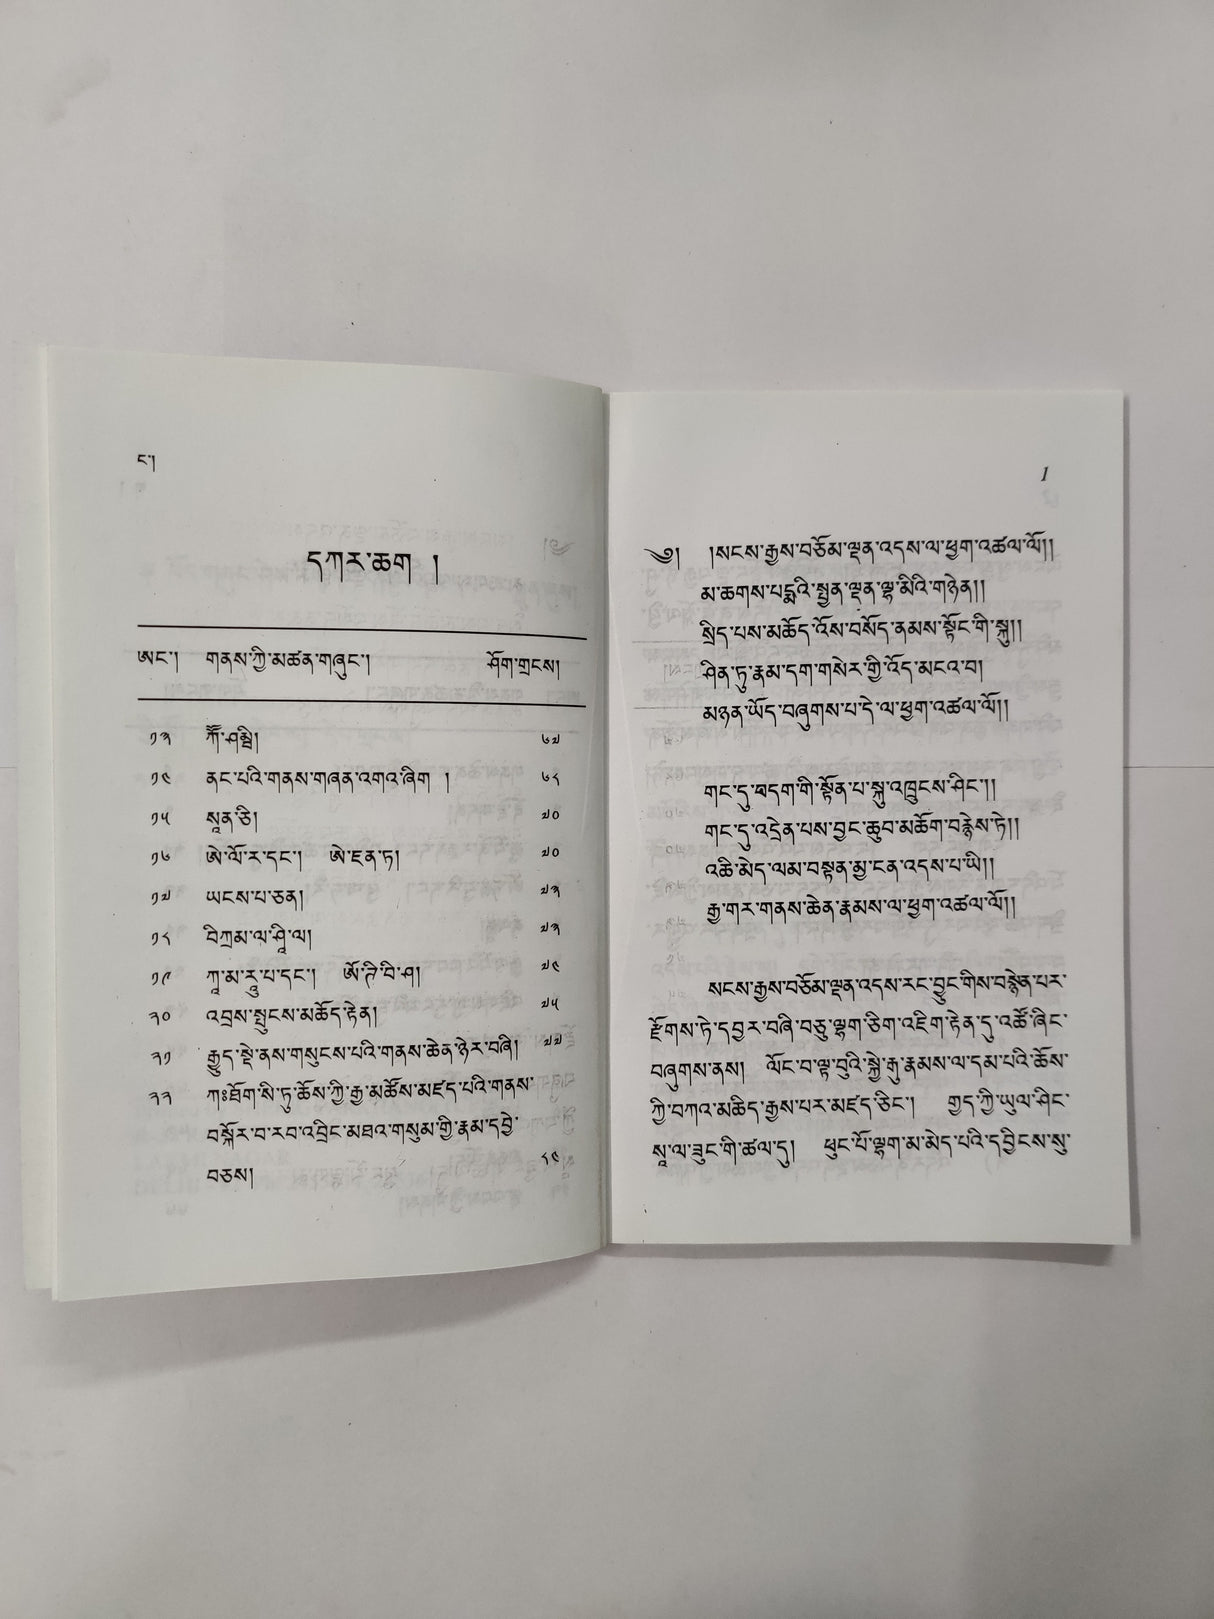 ང་།
དཀར་ཆག །
ཨང་། གནས་ཀྱི་མཚན་གཞུང་། ཤོག་གྲངས།
༡༣ ཀཽ་ཤམྦི། ༦༧
༡༤ ནང་པའི་གནས་གཞན་འགའ་ཞིག ། ༦༨
༡༥ སཱན་ཅི། ༧༠
༡༦ ཨེ་ལོ་ར་དང་། ཨེ་ཛན་ཏ། ༧༠
༡༧ ཡངས་པ་ཅན། ༧༣
༡༨ བིཀྲམ་ལ་ཤཱི་ལ། ༧༣
༡༩ ཀཱ་མ་རཱུ་པ་དང་། ཨོ་ཊི་བི་ཤ། ༧༤
༢༠ འབྲས་སྤུངས་མཆོད་རྟེན། ༧༥
༢༡ རྒྱུད་སྡེ་ནས་གསུངས་པའི་གནས་ཆེན་ཉེར་བཞི། ༧༧
༢༢ ཀཿཐོག་སི་ཏུ་ཆོས་ཀྱི་རྒྱ་མཚོས་མཛད་པའི་གནས་
བསྐོར་བ་རབ་འབྲིང་མཐའ་གསུམ་གྱི་རྣམ་དབྱེ་
བཅས། ༨༤
1
༄༅། །སངས་རྒྱས་བཅོམ་ལྡན་འདས་ལ་ཕྱག་འཚལ་ལོ།།
མ་ཆགས་པདྨའི་སྤྱན་ལྡན་ལྷ་མིའི་གཉེན།།
སྲིད་པས་མཆོད་འོས་བསོད་ནམས་སྟོང་གི་སྐུ།།
ཤིན་ཏུ་རྣམ་དག་གསེར་གྱི་འོད་མངའ་བ།
མཉན་ཡོད་བཞུགས་པ་དེ་ལ་ཕྱག་འཚལ་ལོ།།
གང་དུ་བདག་གི་སྟོན་པ་སྐུ་འཁྲུངས་ཤིང་།།
གང་དུ་འདྲེན་པས་བྱང་ཆུབ་མཆོག་བརྙེས་ཏེ།།
འཆི་མེད་ལམ་བསྟན་མྱ་ངན་འདས་པ་ཡི།།
རྒྱ་གར་གནས་ཆེན་རྣམས་ལ་ཕྱག་འཚལ་ལོ།།
སངས་རྒྱས་བཅོམ་ལྡན་འདས་རང་བྱུང་གིས་བརྙེན་པར་
རྫོགས་ཏེ་དབྱར་བཞི་བཅུ་ལྷག་ཅིག་འཇིག་རྟེན་དུ་འཚོ་ཞིང་
བཞུགས་ནས། ལོང་བ་ལྟ་བུའི་སྐྱེ་རྒུ་རྣམས་ལ་དམ་པའི་ཆོས་
ཀྱི་བཀའ་མཆིད་རྒྱས་པར་མཛད་ཅིང་། གྱད་ཀྱི་ཡུལ་ཤིང་
སཱ་ལ་ཟུང་གི་ཚལ་དུ། ཕུང་པོ་ལྷག་མ་མེད་པའི་དབྱིངས་སུ་